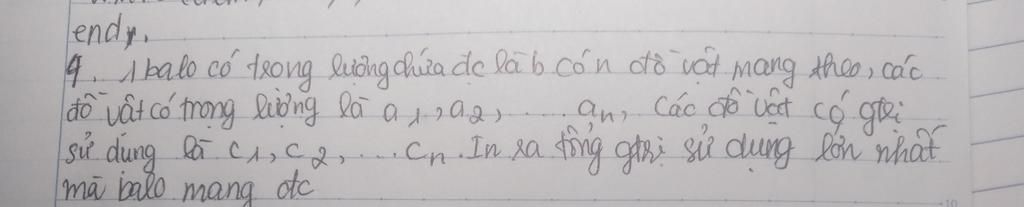 end.
4. 1 balo có trọng lượng chứa đc là b có n đồ vật mang theo, các
đồ vật có trọng lượng là a1, a2, ..... an, các đồ vật có gtri
sử dụng là c1, c2, ... cn. In ra tổng gtri sử dụng lớn nhất
mà balo mang đc